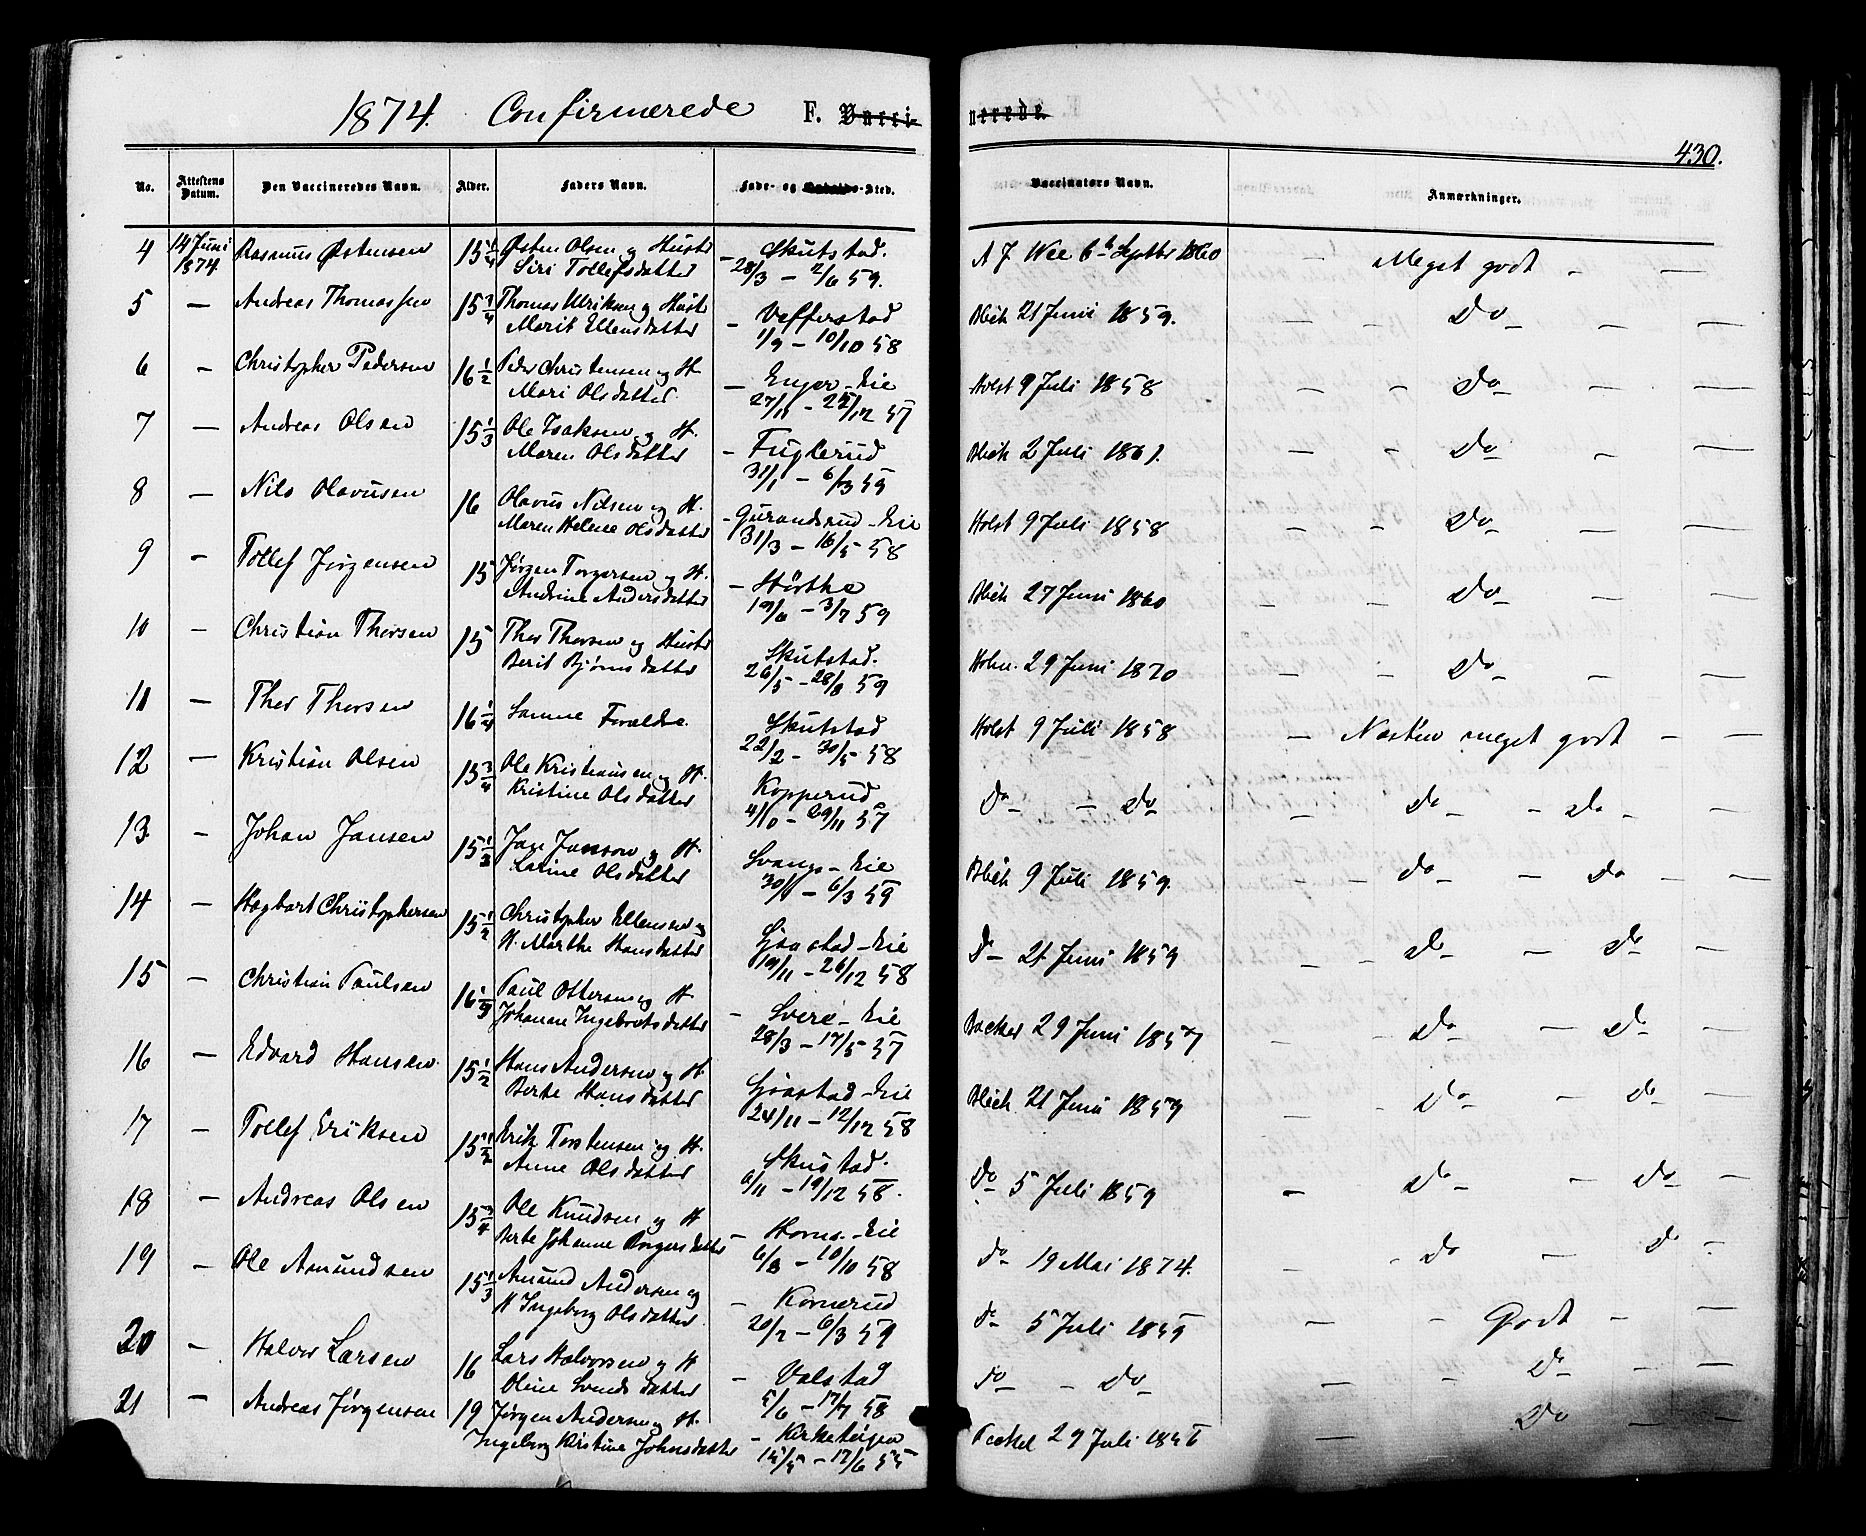 1874. Confirmerede F. Vacci-
nerede.
430.
No. Attestens Datum. Den Vaccineredes Navn. Alder. Faders Navn. Føde- og -Sted. Vaccinators Navn. Anmærkninger.
4 14 Juni 1874. Rasmus Østensen 15 1/4 Østen Olsen og Hustr Siri Tollefsdatter – Skutstad. 28/3 – 2/6 59. A J Wee 6te Septbr 1860 – Meget godt – –
5 – Andreas Thomassen 15 3/4 Thomas Ulriksen og Hustr Marit Ellensdatter – Vefferstad 1/9 – 10/10 58 Blich 21 Juni 1859. – – Do – –
6 – Christopher Pedersen 16 1/2 Peder Christensen og H. Mari Olsdatter – Enger-Eie 27/11 – 25/12 57 Holst 9 Juli 1858 – – Do – –
7 – Andreas Olsen 15 1/3 Ole Isaksen og H. Maren Olsdatter – Fuglerud 31/1 – 6/3 59 Blich 2 Juli 1861. – – Do – –
8 – Nils Olavusen 16 Olavus Nilsen og H. Maren Helene Olsdatter – Gurandsrud-Eie 31/3 – 16/5 58 Holst 9 Juli 1858 – – Do – –
9 – Tollef Jørgensen 15 Jørgen Torgersen og H. Andrine Andersdatter – Hörthe 19/6 – 3/7 59 Blich 27 Juni 1860 – – Do – –
10 – Christian Thorsen 15 Thor Thorsen og Hustr Berit Bjørnsdatter Skutstad. 26/5 – 28/8 59 Holm. 29 Juni 1870 – – Do – –
11 – Thor Thorsen 16 1/4 Samme Forældre. Skutstad 22/2 – 30/5 58 Holst 9 Juli 1858 – Næsten meget godt – –
12 – Kristian Olsen 15 3/4 Ole Kristiansen og H. Kristine Olsdatter Kopperud 4/10 – 29/11 57 Do – – Do – Do – Do – –
13. – Johan Jansen 15 1/3 Jan Janson og H. Karine Olsdatter Svangs-Eie 30/1 – 6/3 59 Blich 9 Juli 1859. – – Do – – Do – –
14 – Hagbart Christophersen 15 1/2 Christopher Ellensen og H. Marthe Hansdatter Gjøvstad-Eie 19/11 – 26/12 58 Do – 21 Juni 1859 – – Do – – Do –
15 – Christian Paulsen 16 1/3 Paul Ottersen og H Johanne Ingebretsdatter – Svere-Eie 28/3 – 17/5 57 Backer 29 Juni 1857 – – Do – – Do –
16 – Edvard Hansen. 15 1/2 Hans Andersen og H Berte Hansdatter Gjøvstad-Eie 24/11 – 12/12 58 Blich 21 Juni 1859 – – Do – – Do –
17 – Tollef Eriksen 15 1/2 Erik Torstensen og H. Anne Olsdatter Skutstad. 6/11 – 19/12 58. Do 5 Juli 1859 – Do – – Do –
18 – Andreas Olsen 15 3/4 Ole Knudsen og H Berte Johanne Borgersdatter – Horns-Eie 6/8 – 10/10 58 Do 19 Mai 1874. – – Do – Do –
19 – Ole Amundsen 15 1/3 Amund Andersen og H Ingeborg Olsdatter – Kornerud 20/2 – 6/3 59 Do 5 Juli 1859 – – Godt – –
20 – Halvor Larsen 16 Lars Halvorsen og H Oline Svendsdatter – Valstad 5/6 – 17/7 58 Do – – Do – – Do – –
21 – Andreas Jørgensen 19 Jørgen Andersen og H. Ingeborg Kristine Johnsdatter – Kirketeigen 15/5 – 17/6 55 29 Juli 1856 – Do – –